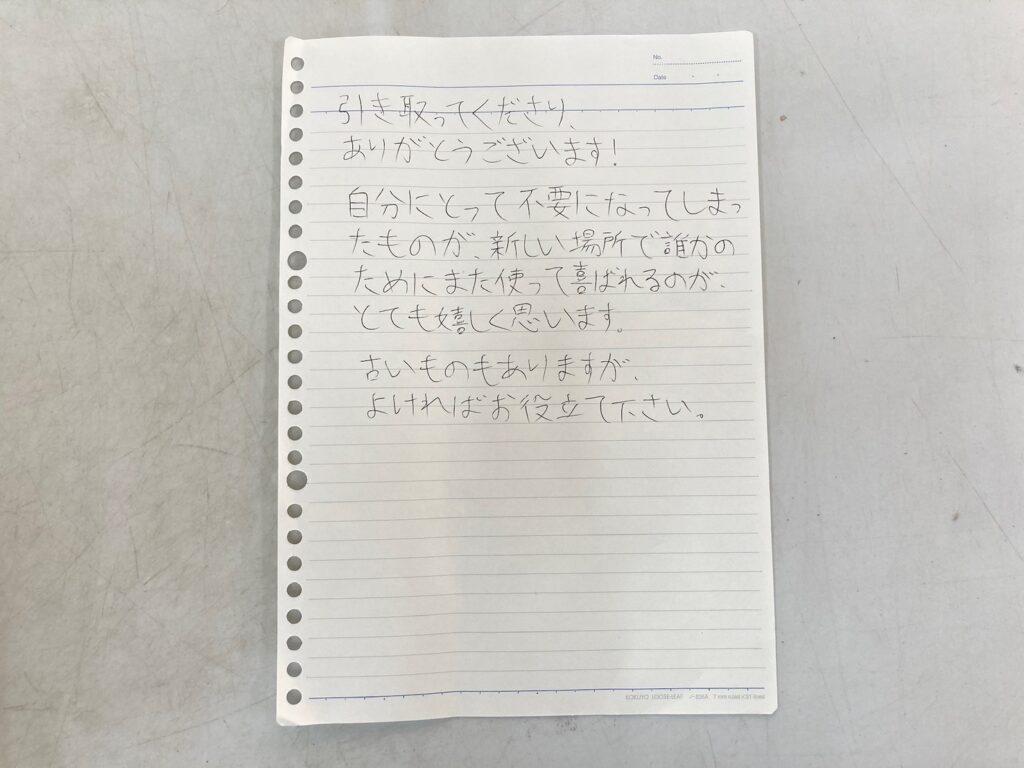 No.
Date
引き取ってくださり、
ありがとうございます!
自分にとって不要になってしまっ
たものが、新しい場所で誰かの
ためにまた使って喜ばれるのが、
とても嬉しく思います。
古いものもありますが、
よければお役立て下さい。